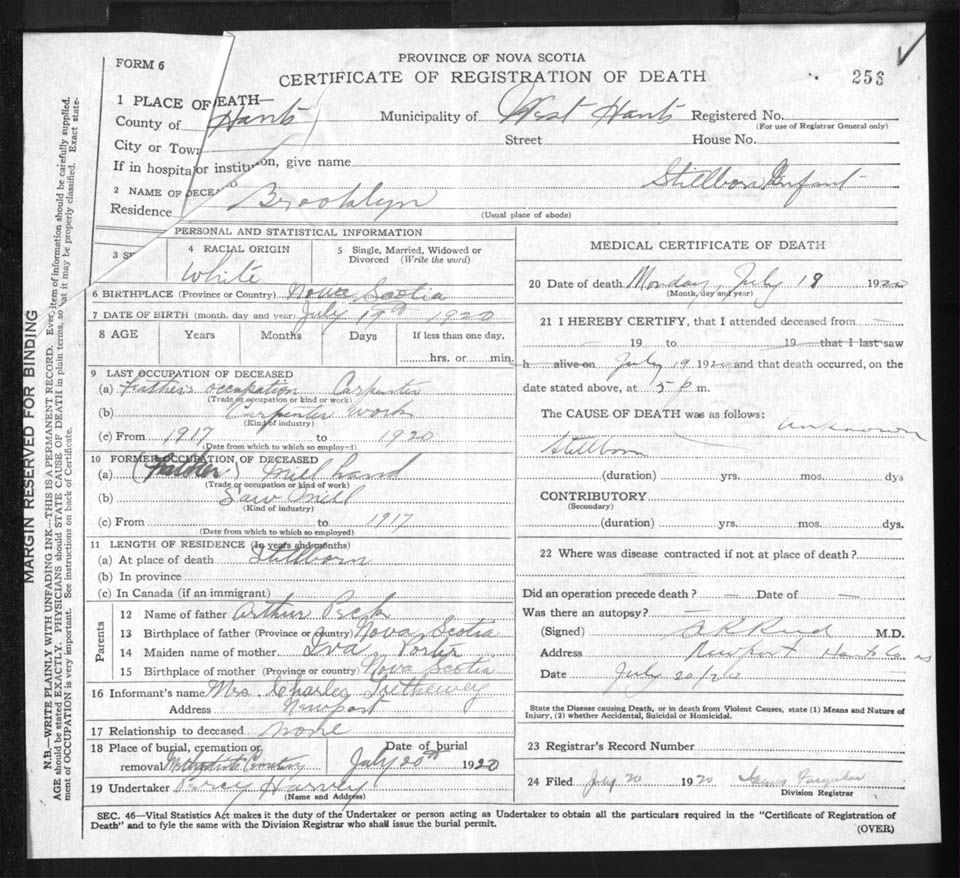 FORM 6
PROVINCE OF NOVA SCOTIA
CERTIFICATE OF REGISTRATION OF DEATH
253
1 PLACE OF EATH—
County of Hants Municipality of West Hants Registered No.
(For use of Registrar General only)
City or Town Street House No.
If in hospital or institution, give name
2 NAME OF DECEA Stillborn Infant
Residence Brooklyn
(Usual place of abode)
PERSONAL AND STATISTICAL INFORMATION
3 SE
4 RACIAL ORIGIN
White
5 Single, Married, Widowed or
Divorced (Write the word)
6 BIRTHPLACE (Province or Country) Nova Scotia
7 DATE OF BIRTH (month, day and year) July 19th 1920
8 AGE Years Months Days If less than one day,
hrs. or min.
9 LAST OCCUPATION OF DECEASED
(a) Father's occupation Carpenter
(Trade or occupation or kind or work)
(b) Carpenter Work
(Kind of industry)
(c) From 1917 to 1920
(Date from which to which so employ-d)
10 FORMER OCCUPATION OF DECEASED
(a) (Father) Mill hand
(Trade or occupation or kind of work)
(b) Saw Mill
(Kind of industry)
(c) From to 1917
(Date from which to which so employed)
11 LENGTH OF RESIDENCE (In years and months)
(a) At place of death Stillborn
(b) In province
(c) In Canada (if an immigrant)
Parents
12 Name of father Arthur Peck
13 Birthplace of father (Province or Country) Nova Scotia
14 Maiden name of mother Iva Porter
15 Birthplace of mother (Province or country) Nova Scotia
16 Informant's name Mrs. Charles Trethewey
Address Newport
17 Relationship to deceased none
18 Place of burial, cremation or
removal Methodist Cemetery
Date of burial
July 20th 1920
19 Undertaker Percy Harvey
(Name and Address)
MEDICAL CERTIFICATE OF DEATH
20 Date of death Monday, July 19 1920
(Month, day and year)
21 I HEREBY CERTIFY, that I attended deceased from
19 to 19 that I last saw
h alive on July 19 1920 and that death occurred, on the
date stated above, at 5 p m.
The CAUSE OF DEATH was as follows:
unknown
Stillborn
(duration) yrs. mos. dys
CONTRIBUTORY
(Secondary)
(duration) yrs. mos. dys.
22 Where was disease contracted if not at place of death?
Did an operation precede death? — Date of —
Was there an autopsy? —
(Signed) M.D.
Address Newport Hants Co. NS
Date July 20/20
State the Disease causing Death, or in death from Violent Causes, state (1) Means and Nature of
Injury, (2) whether Accidental, Suicidal or Homicidal.
23 Registrar's Record Number
24 Filed July 20 1920 Farquhar
Division Registrar
SEC. 46—Vital Statistics Act makes it the duty of the Undertaker or person acting as Undertaker to obtain all the particulars required in the "Certificate of Registration of
Death" and to fyle the same with the Division Registrar who shall issue the burial permit.
(OVER)
MARGIN RESERVED FOR BINDING
N.B.—WRITE PLAINLY WITH UNFADING INK—THIS IS A PERMANENT RECORD. Every item of information should be carefully supplied.
AGE should be stated EXACTLY. PHYSICIANS should STATE CAUSE OF DEATH in plain terms, so that it may be properly classified. Exact state-
ment of OCCUPATION is very important. See instructions on back of Certificate.